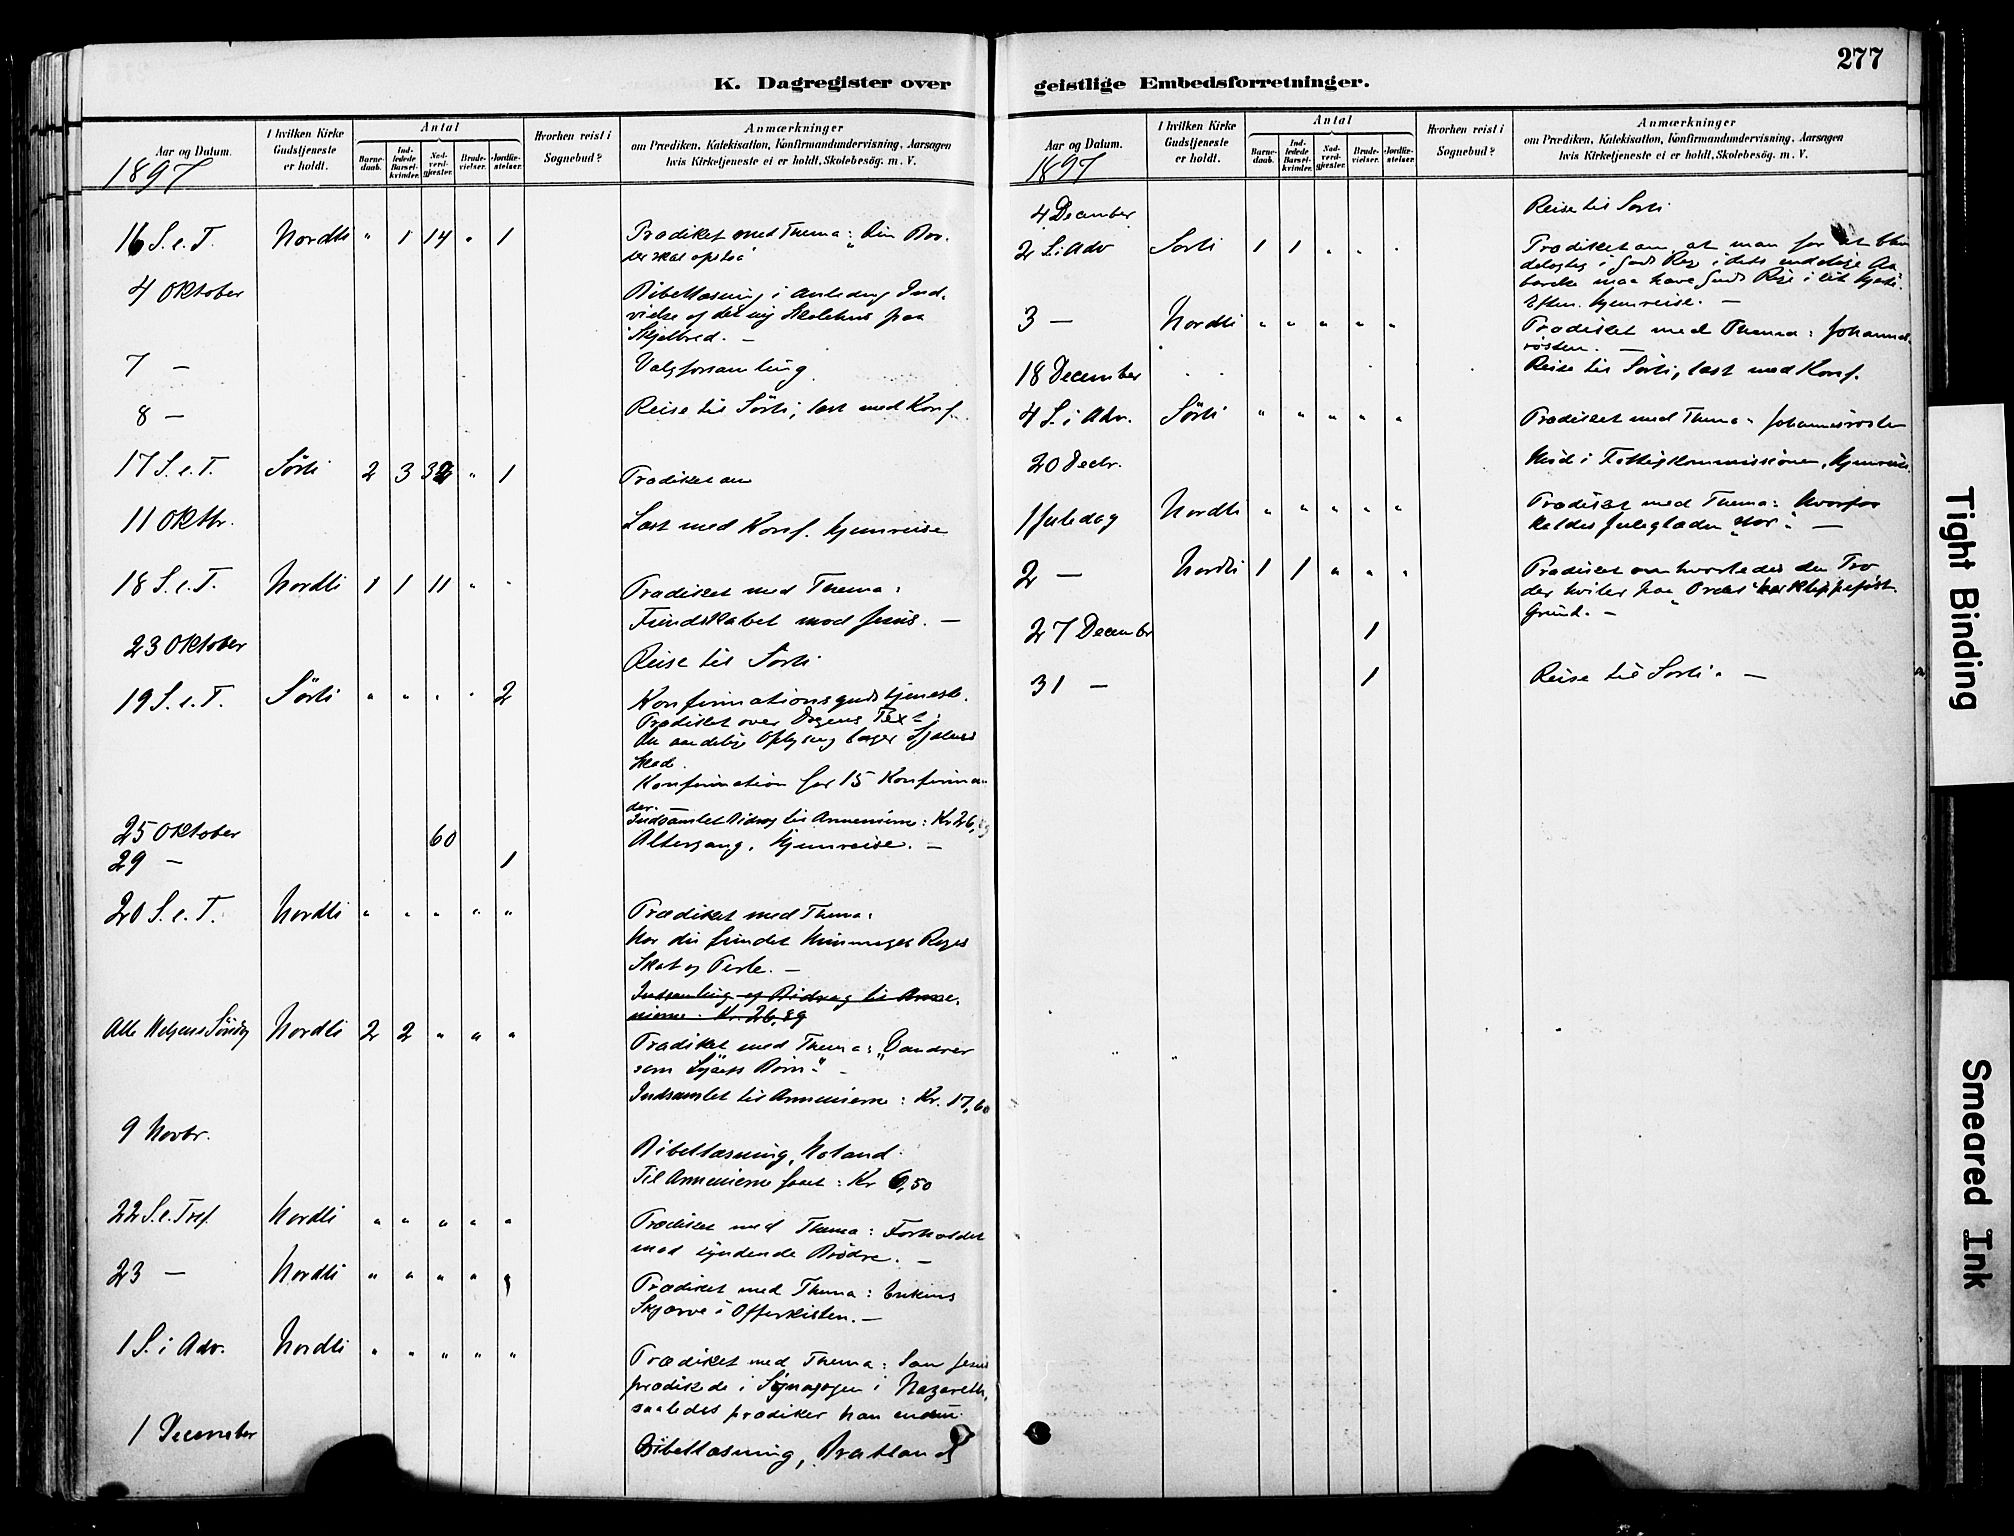 277
K. Dagregister over
geistlige Embedsforretninger.
Aar og Datum.
1897
I hvilken Kirke
Gudstjeneste
er holdt.
Antal
Barne-
daab.
Ind-
ledede
Barsel-
kvinder.
Nad-
verd-
gjæster.
Brude-
vielser.
Jordfæ-
stelser.
Hvorhen reist i
Sognebud?
Anmærkninger
om Prædiken, Katekisation, Konfirmandundervisning, Aarsagen
hvis Kirketjeneste ei er holdt, Skolebesög. m. V.
16 S. e. T. Nordli " 1 14 " 1 Prædiket med Thema: "Din Bro-
der skal opstaa"
4 Oktober Bibellæsning i Anledng Ind-
vielse af det ny Skolehus paa
Skjelbred. —
7 — Valgforsamling
8 — Reise til Sörli, læst med Konf.
17 S. e. T. Sörli 2 3 32 " 1 Prædiket om
11 Oktbr. Læst med Konf. hjemreise
18 S. e. T. Nordli 1 1 11 " " Prædiket med Thema:
Fiendskabet mod Jesus. —
23 Oktober Reise til Sörli
19 S. e. T. Sörli " " " " 2 Konfirmationsgudstjeneste.
Prædiket over Dagens Text:
Den aandelige Oplysning tager Sjælens
Skad.
Konfirmation for 15 Konfirman-
der.
Indsamlet Bidrag til Armenierne: Kr 26,89
25 Oktober 60 Altergang. Hjemreise. —
29 — 1
20 S. e. T. Nordli " " " " " Prædiket med Thema:
Har du fundet Himmeriges Riges
Skat og Perle. —
Indsamling af Bidrag til Arme-
nierne: Kr. 26,89
Alle Helgens Söndag Nordli 2 2 " " " Prædiket med Thema: "Vandrer
som Lysets Börn" —
Indsamlet til Armenierne: Kr. 17,60
9 Novbr. Bibellæsning, Noland
Til Armenierne samt: Kr 6,50
22 S. e. Tref. Nordli " " " " " Prædiket med Thema: Forholdet
mod syndende Brödre. —
23 — Nordli " " " " " Prædiket med Thema: Enkens
Skjærve i Offerkisten. —
1 S. i Adv. Nordli " " " " " Prædiket med Thema: Som Jesus
prædikede i Synagogen i Nazareth,
saaledes prædiker han endnu
1 December Bibellæsning, Bratland
Aar og Datum.
1897
I hvilken Kirke
Gudstjeneste
er holdt.
Antal
Barne-
daab.
Ind-
ledede
Barsel-
kvinder.
Nad-
verd-
gjæster.
Brude-
vielser.
Jordfæ-
stelser.
Hvorhen reist i
Sognebud?
Anmærkninger
om Prædiken, Katekisation, Konfirmandundervisning, Aarsagen
hvis Kirketjeneste ei er holdt, Skolebesög. m. V.
4 December Reise til Sörli
2 S. i Adv Sorli 1 1 " " " Prædiket om, at man for at blive
delagtig i Guds Rige i dets endelige Aa-
barelse maa have Guds Rige i sit hjerte.
Eftm. hjemreise. —
3 — Nordli " " " " " Prædiket med Thema: Johannes-
rösten. —
18 December Reise til Sörli, læst med Konf.
4 S. i Adv. Sörli " " " " " Prædiket med Thema: Johannesrösten
20 Decbr. Möde i Fattigkommissionen, hjemreise.
1 Juledag Nordli " " " " " Prædiket med Thema: Hvorfor
kaldes Juleglæden "stor". —
2 — Nordli 1 1 " " " Prædiket om hvorledes den Tro
der hviler paa "Ordet" har klippefast
Grund. —
27 December 1
31 — 1 Reise til Sörli. —
Tight Binding
Smeared Ink